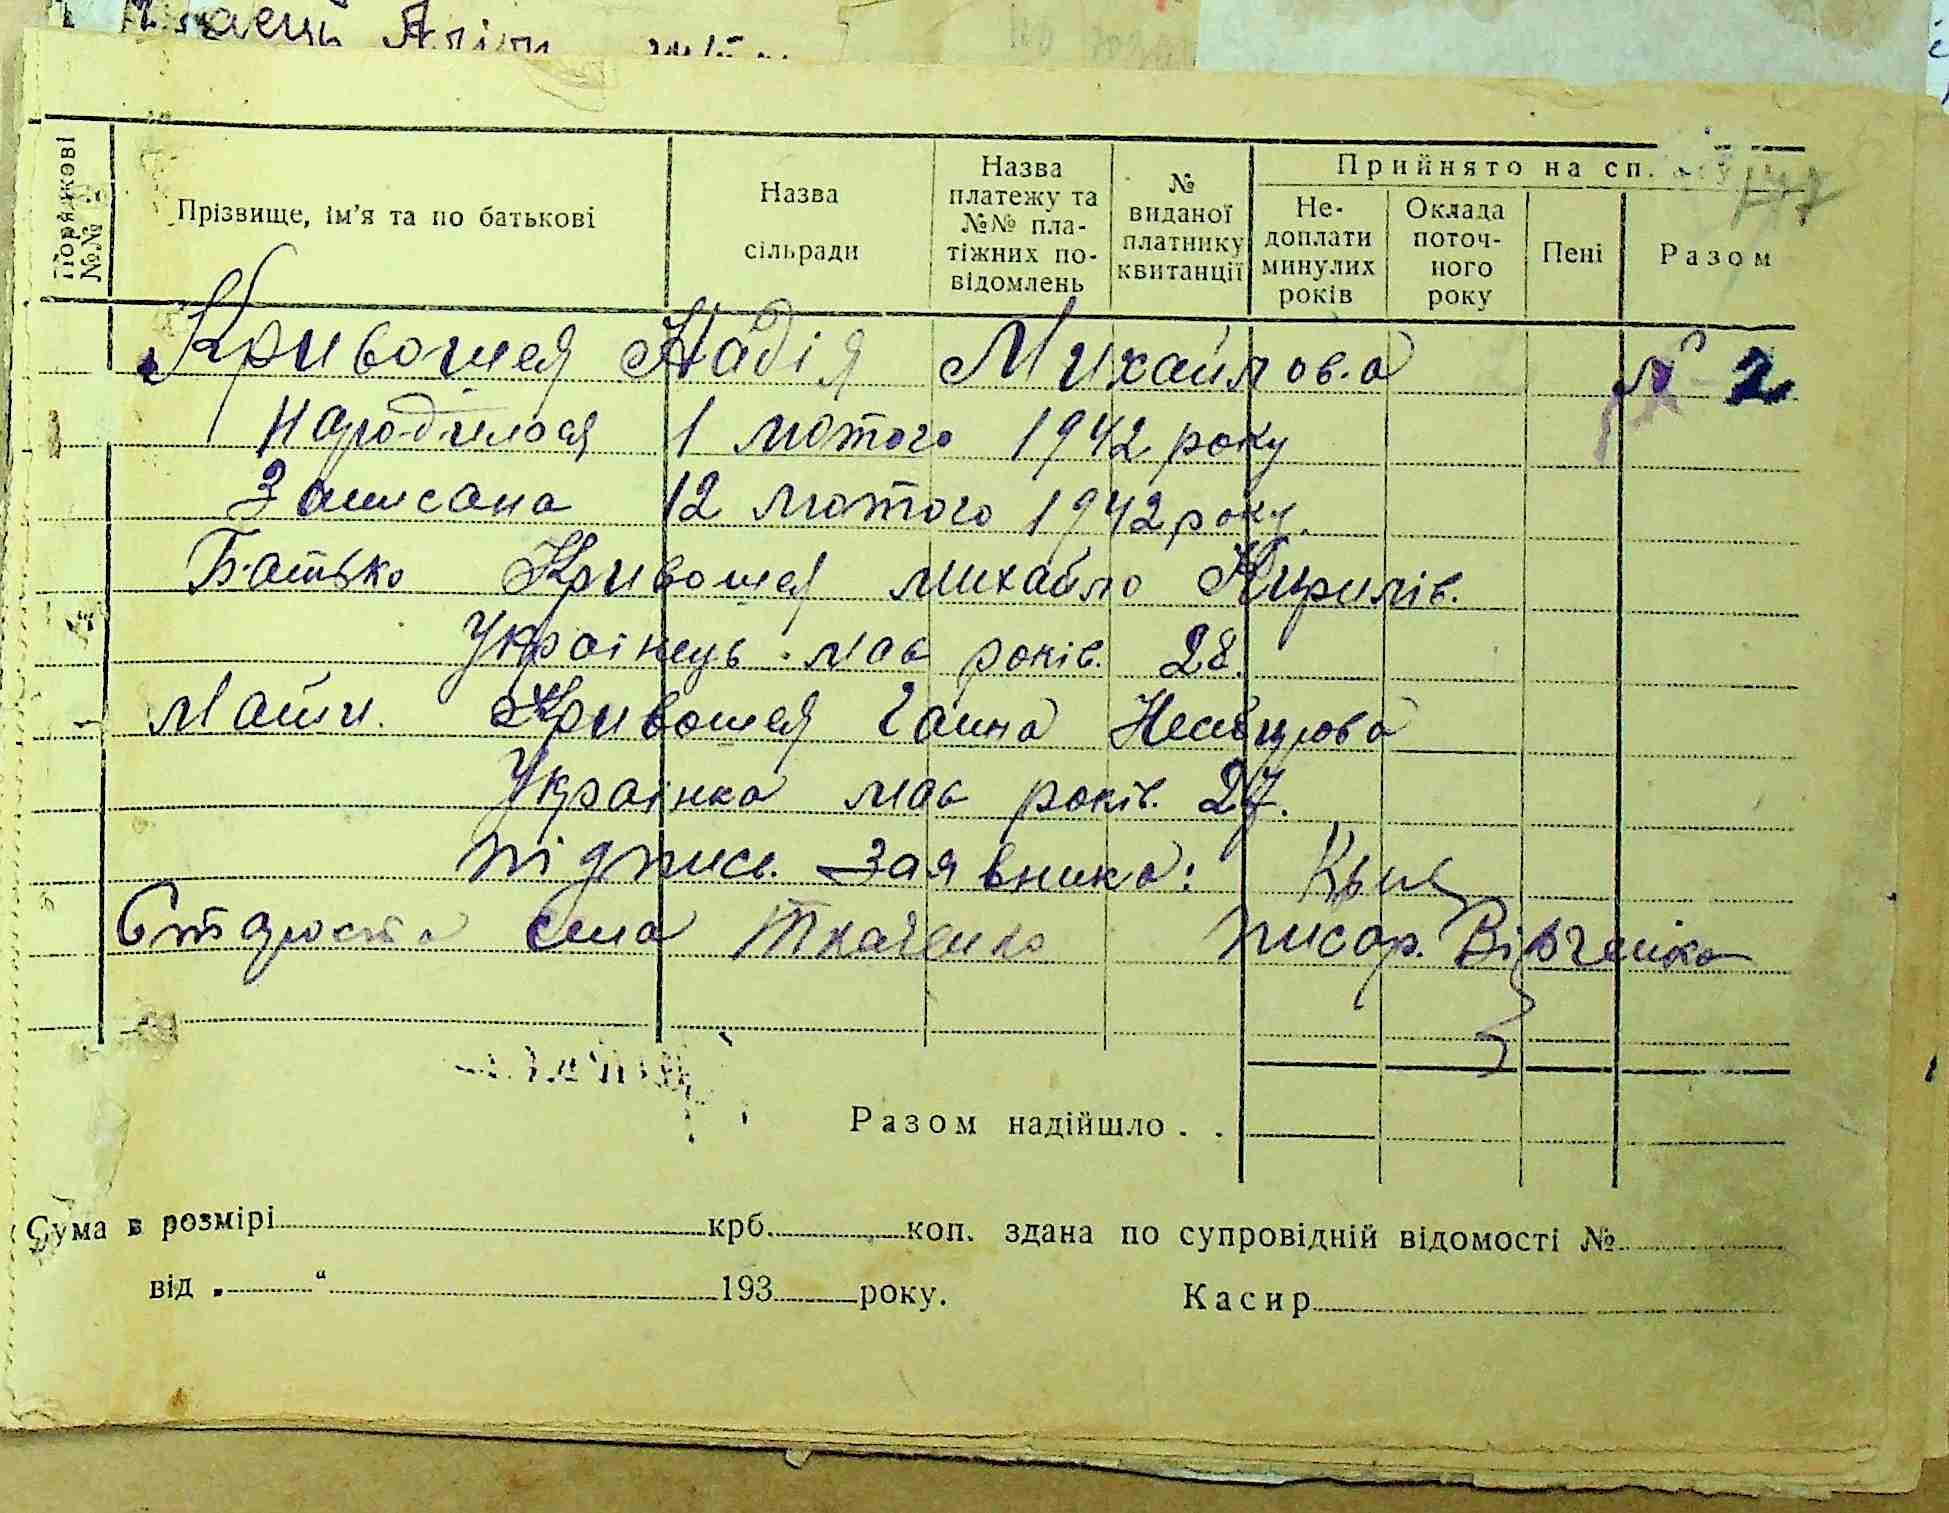 Порядкові №№
Прізвище, ім'я та по батькові
Назва сільради
Назва платежу та №№ платіжних повідомлень
№ виданої платнику квитанції
Прийнято на сп.
Недоплати минулих років
Оклада поточного року
Пені
Разом
147
Кривошея Надія Михайлова № 2
народилася 1 лютого 1942 року
Записана 12 лютого 1942 року.
Батько Кривошея михайло Кирилів.
Українець має років. 28.
Мати. Кривошея Ганна
Українка має років. 27.
підпись. Заявника:
Староста села Ткаченко писар. Вівченко
Разом надійшло . .
Сума в розмірі крб. коп. здана по супровідній відомості №
від „ “ 193 року. Касир